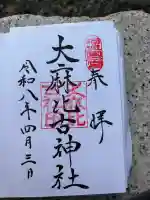 奉拝
大麻比古神社
令和八年四月三日